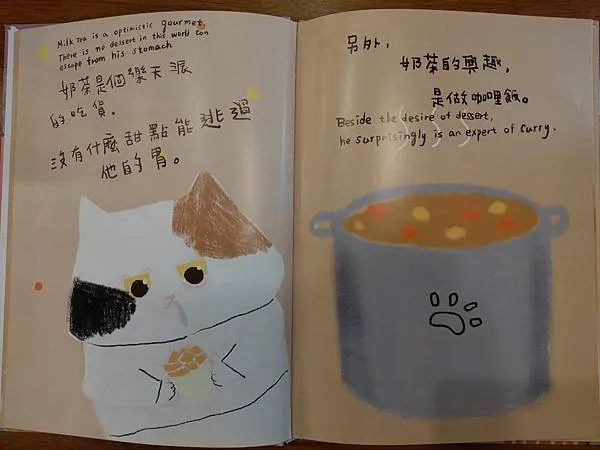 Milk Tea is a optimistic gourmet.
There is no dessert in this world can
escape from his stomach
奶茶是個樂天派
的吃貨。
沒有什麼甜點能逃過
他的胃。
另外，
奶茶的興趣，
是做咖哩飯。
Beside the desire of dessert,
he surprisingly is an expert of curry.